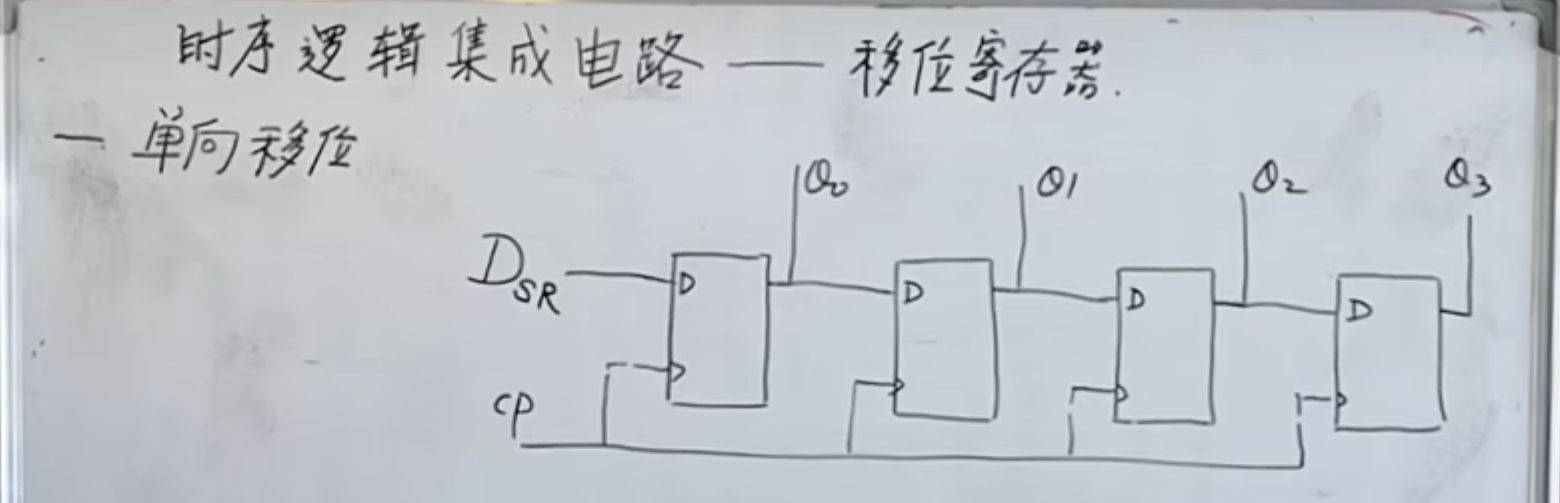 时序逻辑集成电路——移位寄存器.
一 单向移位
Q0 Q1 Q2 Q3
DSR D D D D
CP